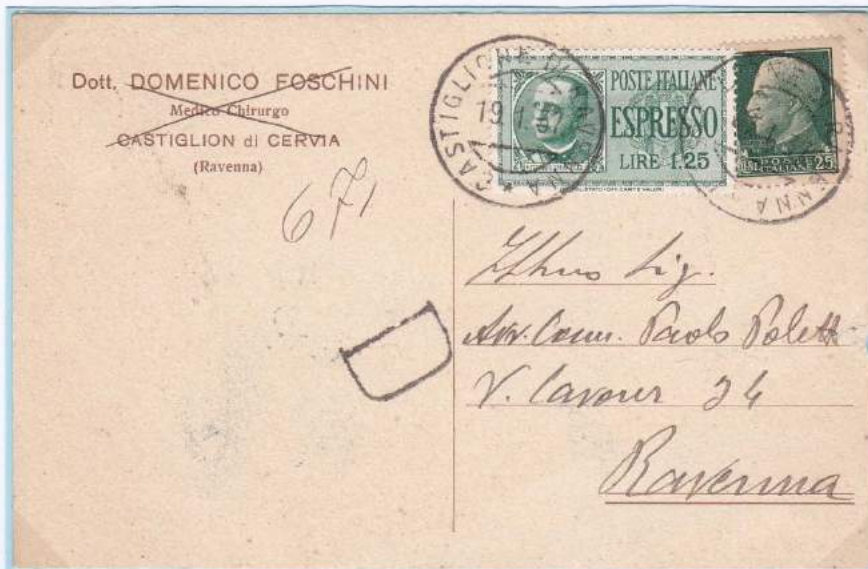 Dott. DOMENICO FOSCHINI
Medico Chirurgo
CASTIGLION di CERVIA
(Ravenna)
671
CASTIGLIONE DI RAVENNA
19. 1.
POSTE ITALIANE
ESPRESSO
LIRE 1.25
POSTE
ITALIANE 25
D
Illmo Sig.
Avv. Comm. Paolo Poletti
V. Cavour 34
Ravenna